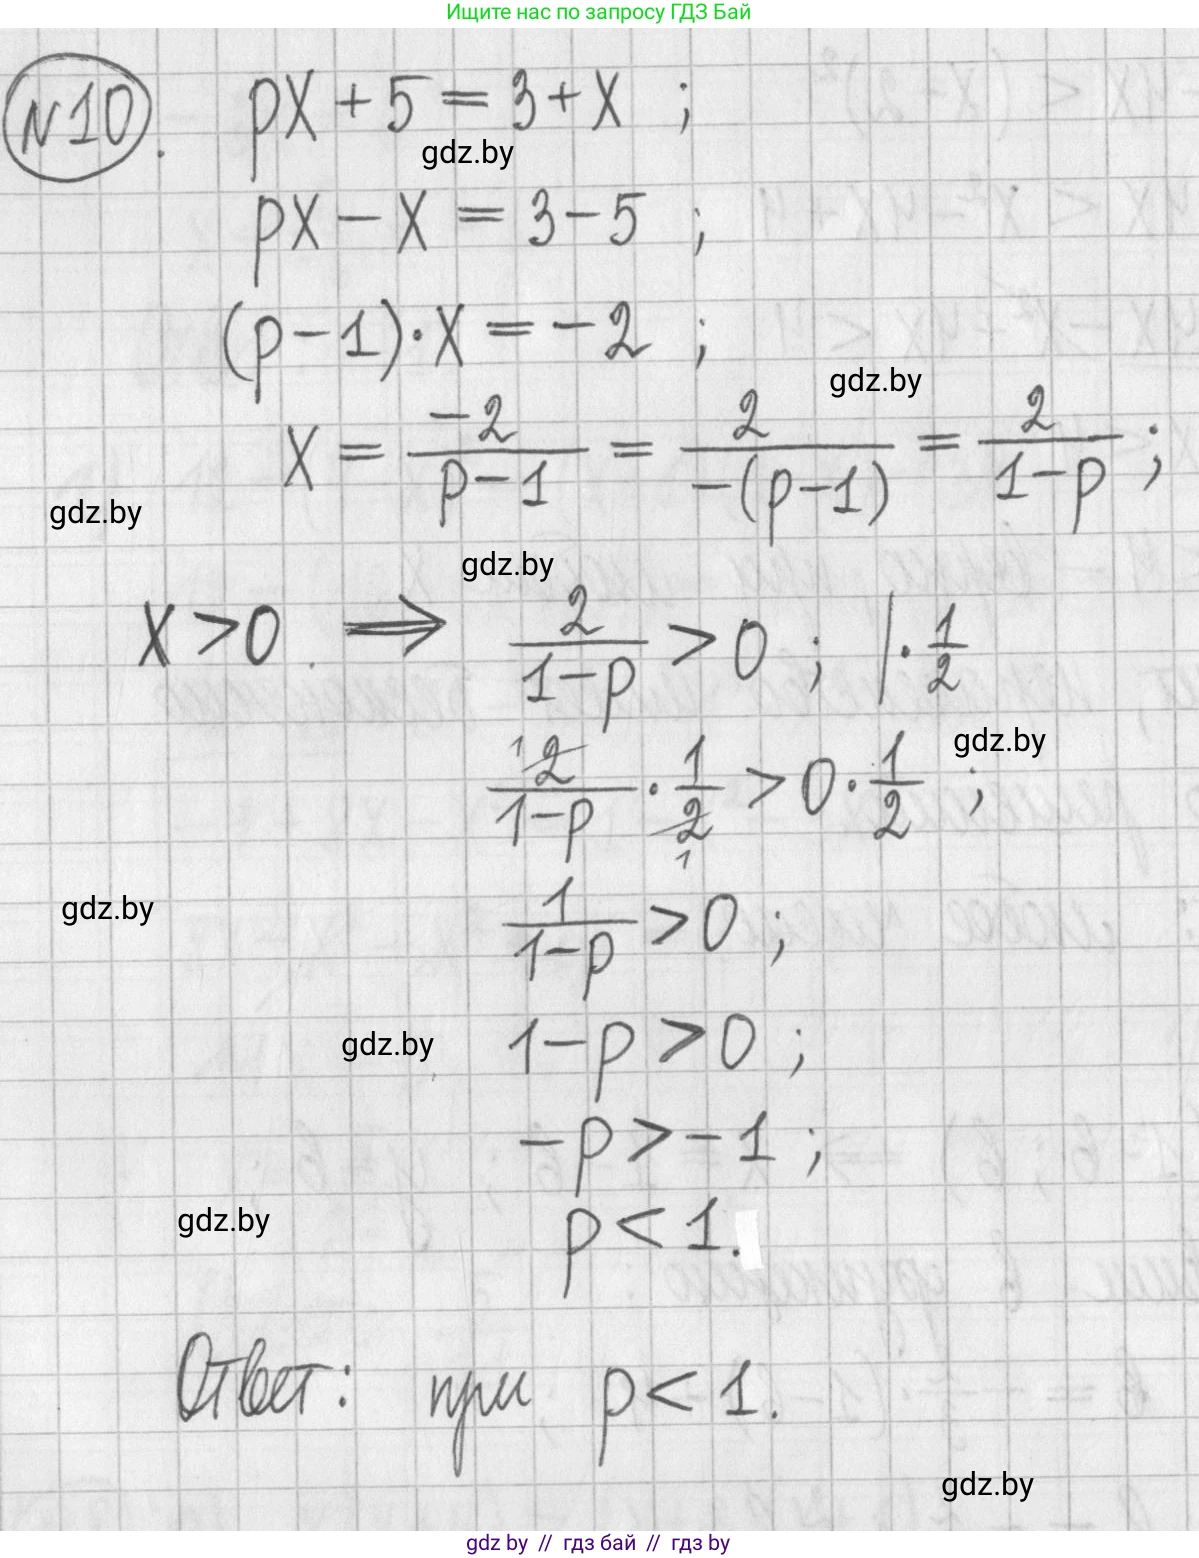 Ищите нас по запросу ГДЗ Бай
№10. px + 5 = 3 + x ;
gdz.by
px − x = 3 − 5 ;
(p − 1) · x = −2 ;
gdz.by
x = −2/(p − 1) = 2/(−(p − 1)) = 2/(1 − p) ;
gdz.by
gdz.by
x > 0. ⟹ 2/(1 − p) > 0 ; | · 1/2
gdz.by
2/(1 − p) · 1/2 > 0 · 1/2 ;
1 1
gdz.by
1/(1 − p) > 0 ;
gdz.by
1 − p > 0 ;
−p > −1 ;
gdz.by
p < 1.
Ответ: при p < 1.
gdz.by
gdz by // гдз бай // гдз by